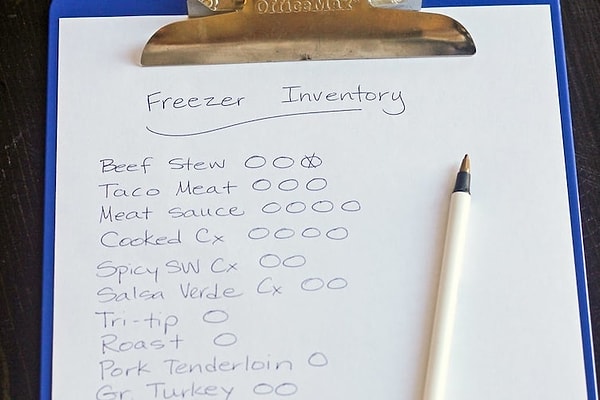 OfficeMax
Freezer Inventory
Beef Stew O O Ⓧ
Taco Meat O O O
Meat sauce O O O O
Cooked Cx O O O O
Spicy SW Cx O O
Salsa Verde Cx O O
Tri-tip O
Roast O
Pork Tenderloin O
Gr. Turkey O O